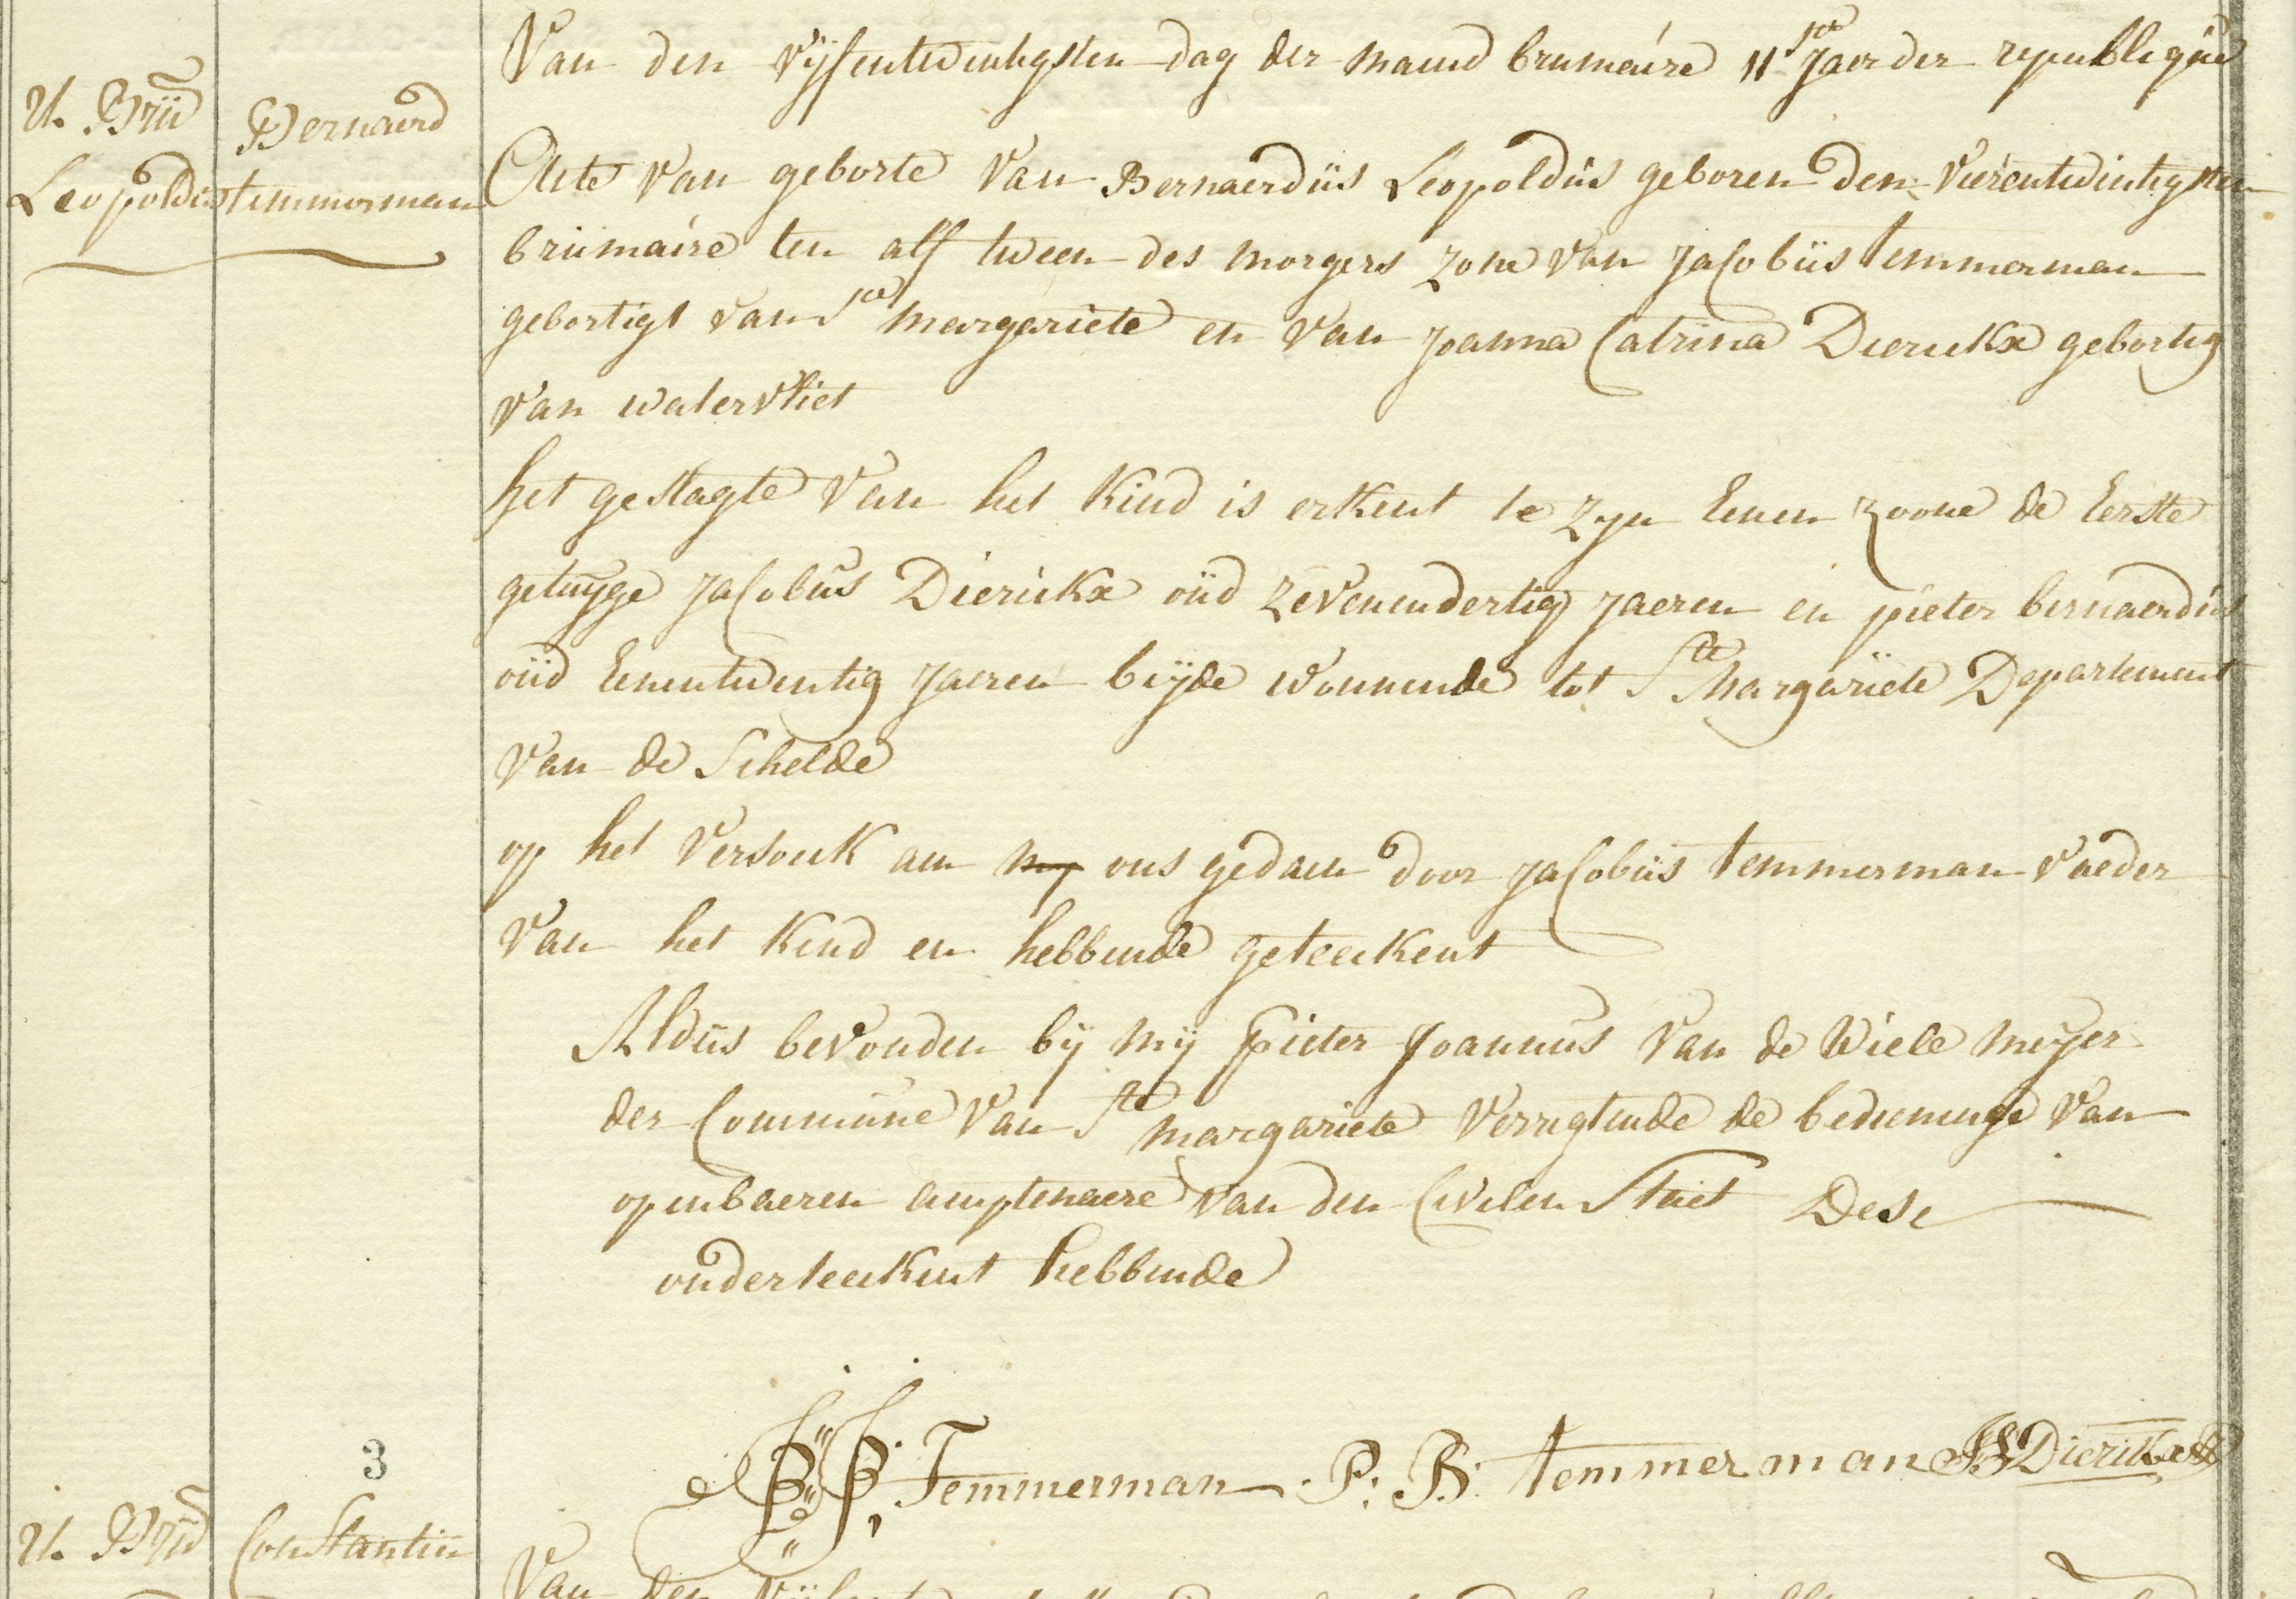 Van den vijfentwintigsten dag der maend brumaire 11ste Jaer der republique
Bernaerd
Leopoldus temmerman
Acte van geborte van Bernaerdus Leopoldus geboren den vierentwintigsten
brumaire ten alf tween des morgens zone van Jacobus temmerman
gebortigt van Ste margariete en van Joanna Catrina Dierickx gebortig
van watervliet
het geslagte van het kind is erkent te zyn Eenen zoone de Eerste
getuyge Jacobus Dierickx oud zevenendertig jaeren en pieter bernaerdus
oud Eenentwentig jaeren beyde woonende tot Ste Margariete Departement
van de Schelde
op het versouk aen my ons gedaen door Jacobus temmerman vaeder
van het kind en hebbende geteekent
Aldus bevonden bij mij Pieter Joannus van de Wiele meyer
der Commune van Ste margariete verrigtende de bedieninge van
openbaeren amptenaere van den Civilen Staet Dese
onderteekent hebbende
Temmerman P: B: temmerman Dierickx
3
Constantin
Van den